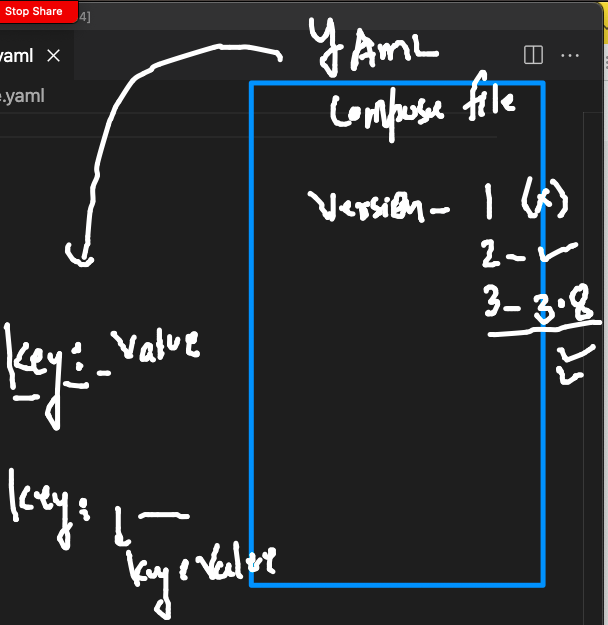 Stop Share
4]
yaml ×
e.yaml
YAML
Compose file
Version - 1 (x)
2 - ✓
3 - 3.8
✓
✓
key: - value
key:
key: value